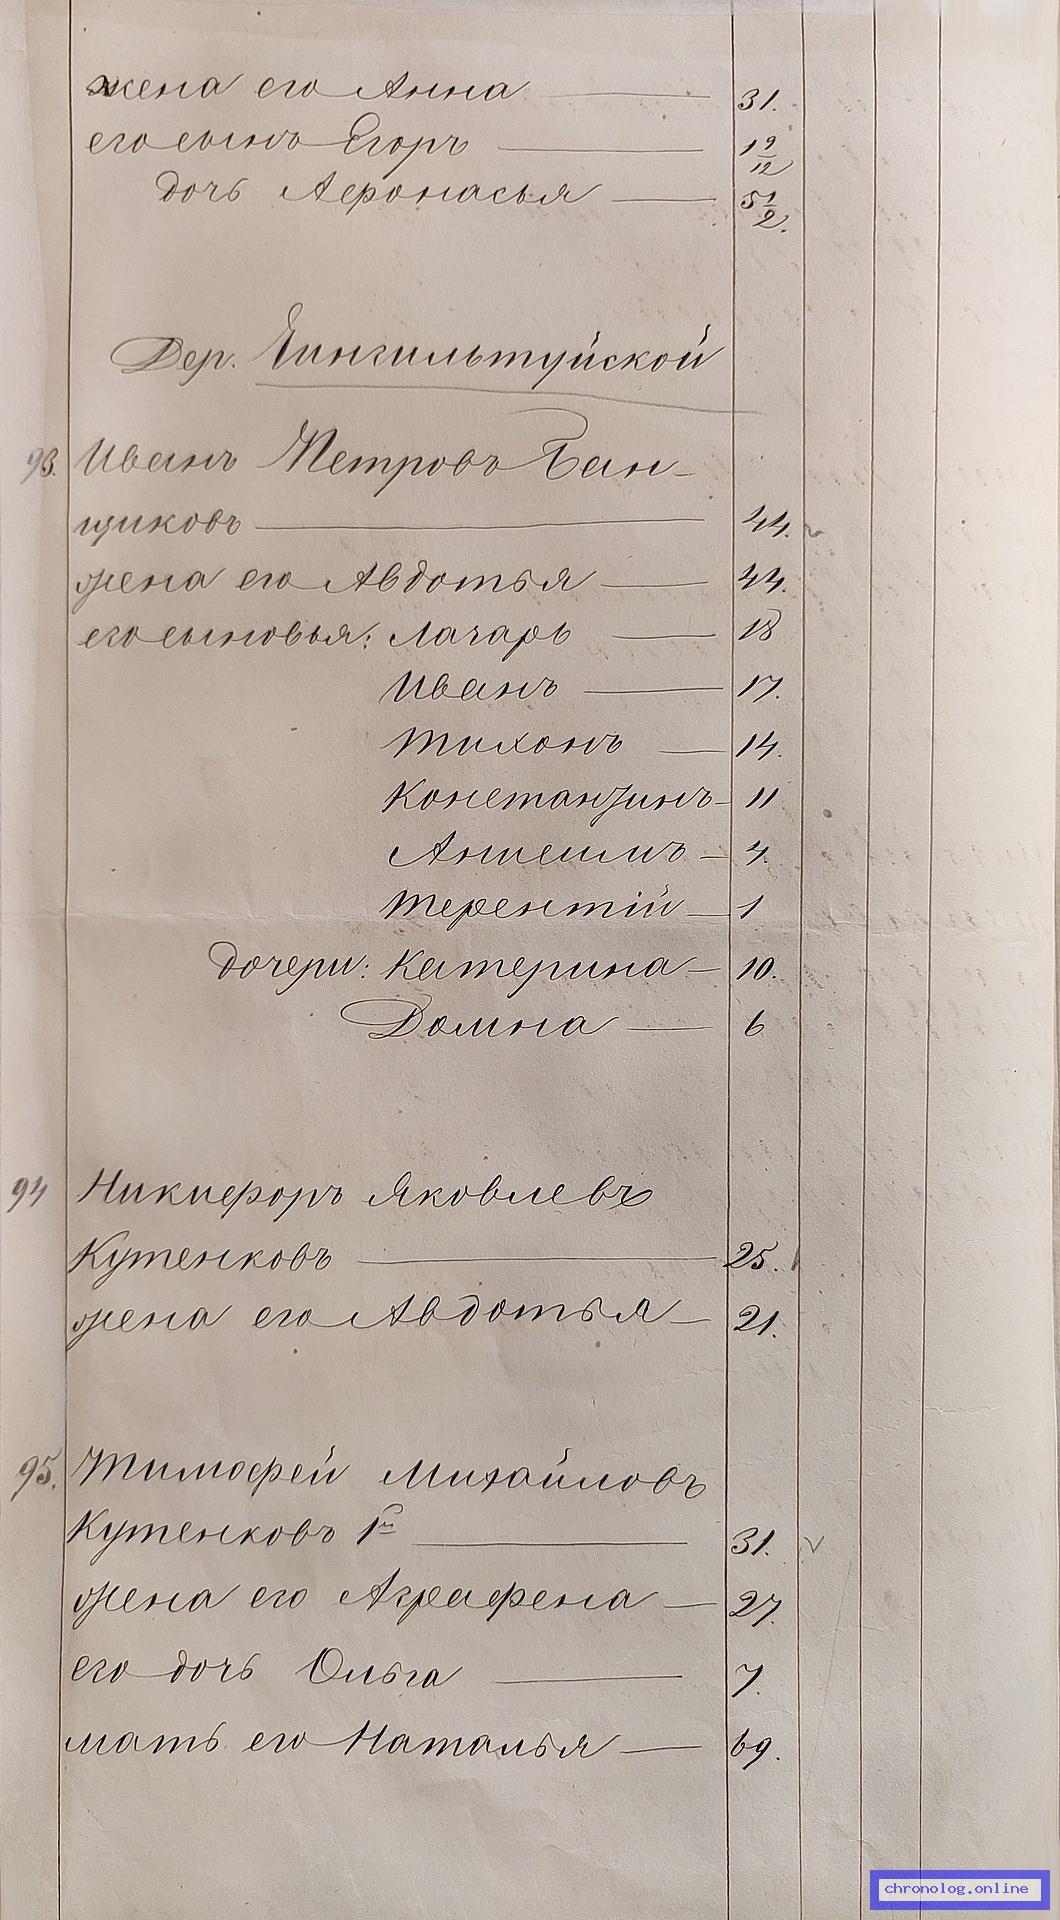 жена его Анна — 31.
его сынъ Егоръ — 1 9/12
дочь Афонасья — 5 1/2.
Дер. Хингильтуйской
93. Иванъ Петровъ Бан-
щиковъ — 44.
жена его Авдотья — 44.
его сыновья: Лазарь — 18
Иванъ — 17.
Тихонъ — 14.
Константинъ — 11
— 4.
Терентій — 1
дочери: Катерина — 10.
Домна — 6
94 Никифоръ Яковлевъ
Кутенковъ — 25.
жена его Авдотья — 21.
95. Тимофей Михайловъ
Кутенковъ 1й — 31.
жена его Аграфена — 27.
его дочь Ольга — 7.
мать его Наталья — 69.
chronolog.online